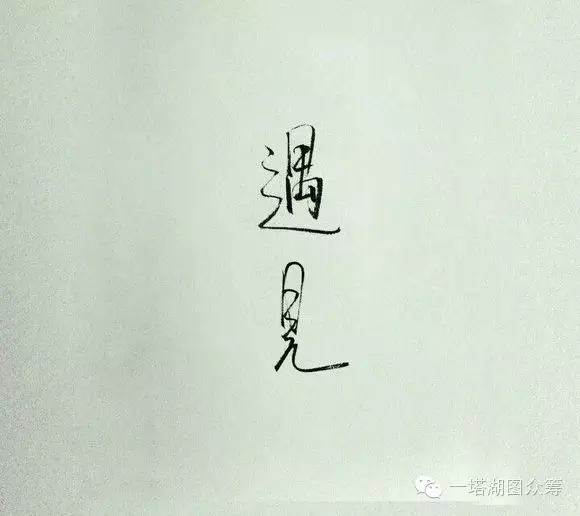 遇
見
一塔湖图众筹